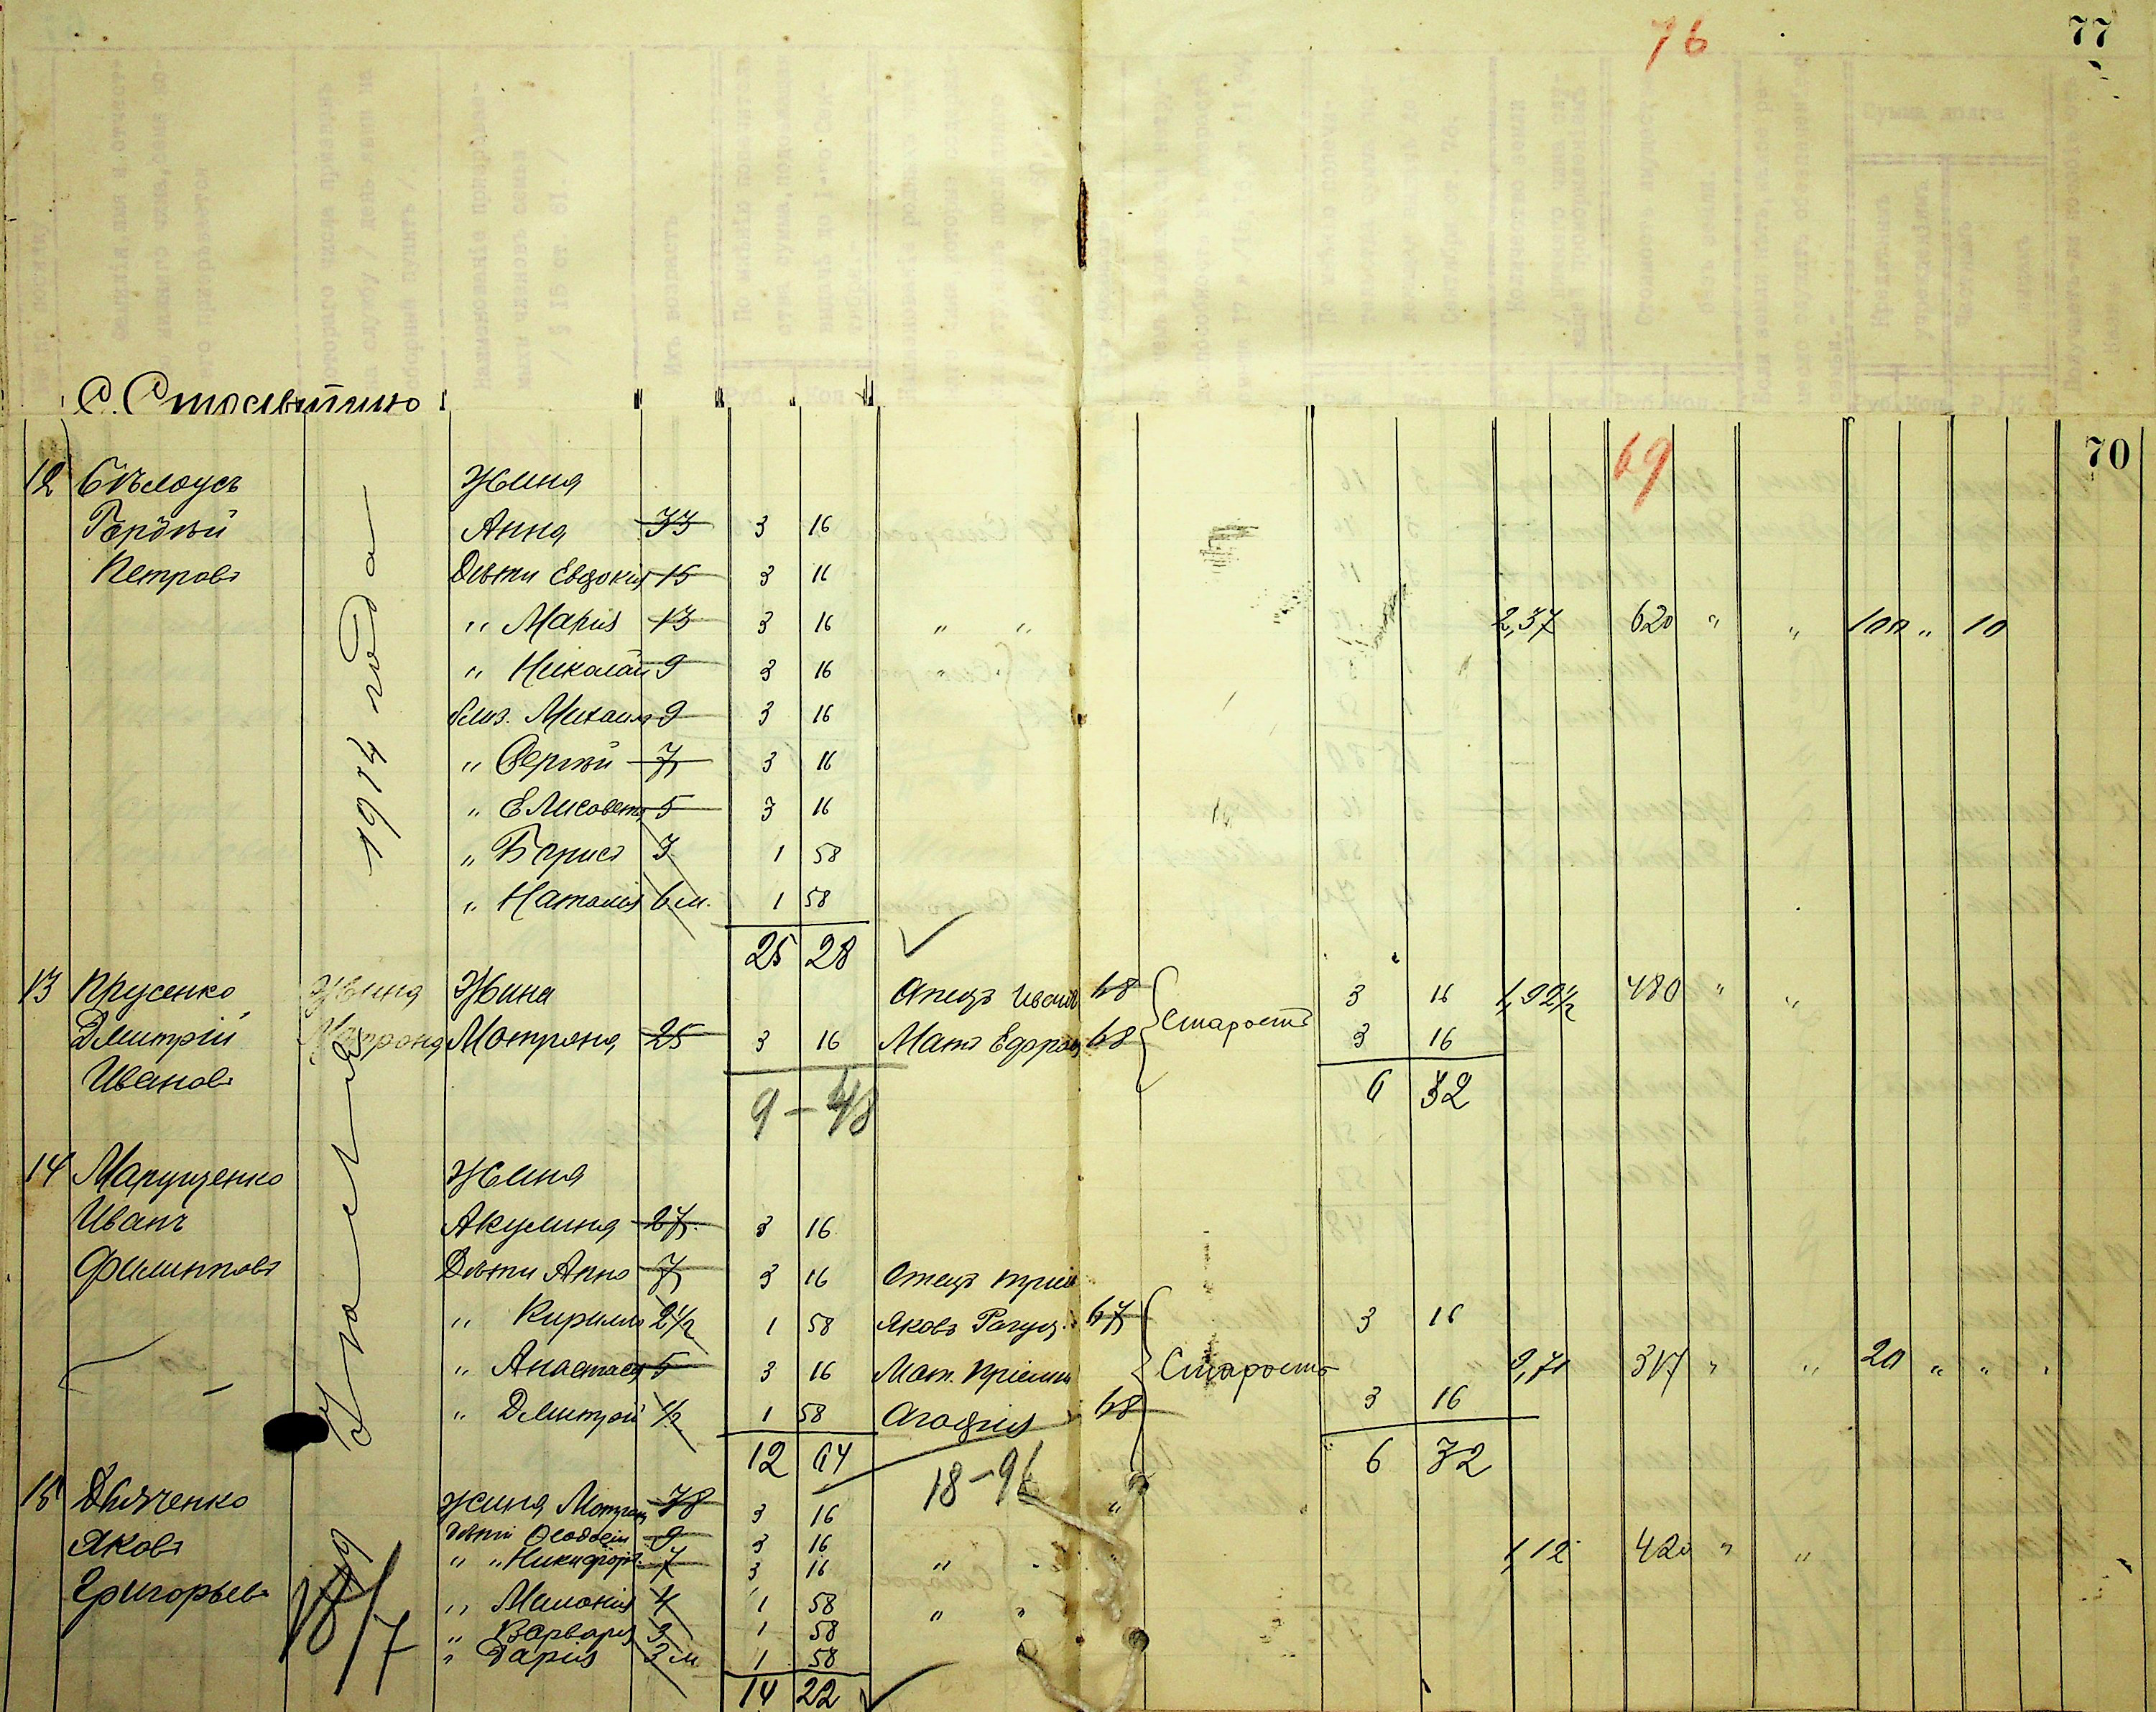 76
77
С.
69
70
12 Бѣлоусъ Жена
Гордѣй Анна 33 3 16
Петровъ Дѣти Евдокія 15 3 16
" Марія 13 3 16 " " 2,37 620 " " 100 " 10
" Николай 9 3 16
близ. Михаилъ 9 3 16
" Сергѣй 7 3 16
" Елисовета 5 3 16
" Борисъ 3 1 58
" Наталія 6 м. 1 58
25 28
13 Прусенко Жена Жена Отецъ Иванъ 68 3 16 1,92½ 480 " "
Дмитрій Матрона Мотрона 25 3 16 Мать 68 Старость 3 16
Ивановъ 6 32
9-48
14 Марущенко Жена
Иванъ Акулина 27 3 16
Филипповъ Дѣти Анна 7 3 16 Отецъ
" Кириллъ 2½ 1 58 Яковъ 67 3 16
" Анастасія 5 3 16 Мат. Старость 317 " " 20 " " "
" Дмитрій ½ 1 58 Агафія 68 3 16
12 64 6 32
18-96
15 Дьяченко Жена 3 16 "
Яковъ Дѣти Феодосій 9 3 16
" " Никифоръ 7 3 16 " " 1,12 420 " "
Григорьевъ " 4 1 58 " "
" Варвара 3 1 58
" Дарія 3 м 1 58
14 22
1914 года
18/7